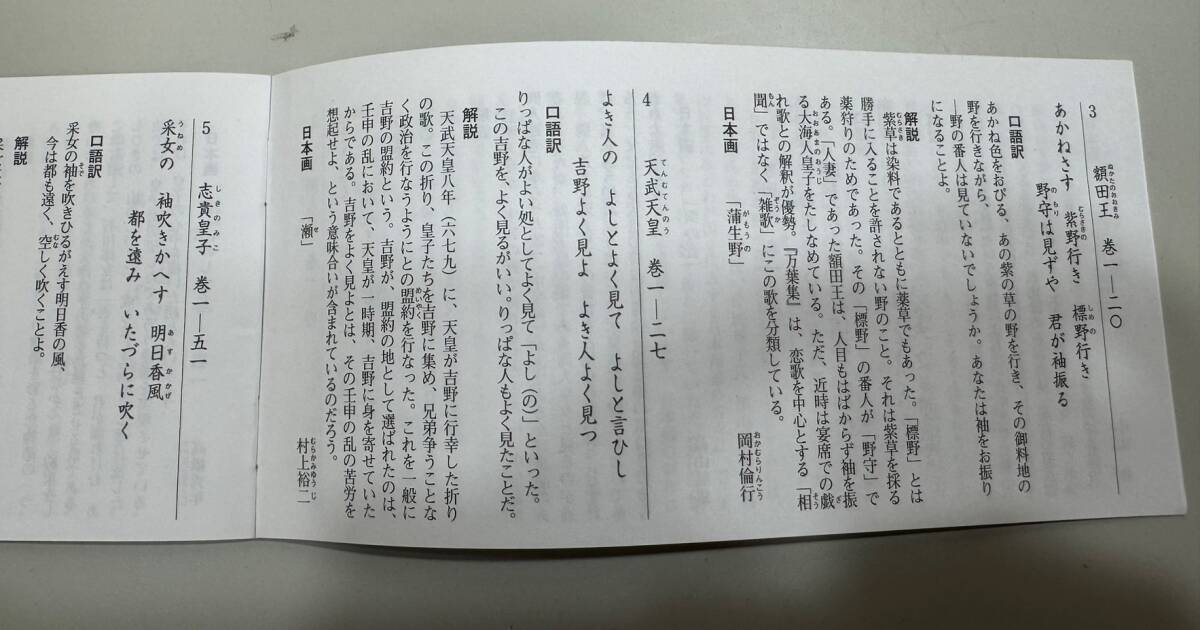 3　額田王　巻一―二〇
あかねさす　紫野行き　標野行き
野守は見ずや　君が袖振る
口語訳
あかね色をおびる、あの紫の草の野を行き、その御料地の
野を行きながら、
―野の番人は見ていないでしょうか。あなたは袖をお振り
になることよ。
解説
紫草は染料であるとともに薬草でもあった。「標野」とは
勝手に入ることを許されない野のこと。それは紫草を採る
薬狩りのためであった。その「標野」の番人が「野守」で
ある。「人妻」であった額田王は、人目もはばからず袖を振
る大海人皇子をたしなめている。ただ、近時は宴席での戯
れ歌との解釈が優勢。『万葉集』は、恋歌を中心とする「相
聞」ではなく、「雑歌」にこの歌を分類している。
日本画　「蒲生野」　岡村倫行
4　天武天皇　巻一―二七
よき人の　よしとよく見て　よしと言ひし
吉野よく見よ　よき人よく見つ
口語訳
りっぱな人がよい処としてよく見て「よし（の）」といった。
この吉野を、よく見るがいい。りっぱな人もよく見たことだ。
解説
天武天皇八年（六七九）に、天皇が吉野に行幸した折り
の歌。この折り、皇子たちを吉野に集め、兄弟争うことな
く政治を行なうようにとの盟約を行なった。これを一般に
吉野の盟約という。吉野が、盟約の地として選ばれたのは、
壬申の乱において、天皇が一時期、吉野に身を寄せていた
からである。吉野をよく見よとは、その壬申の乱の苦労を
想起せよ、という意味合いが含まれているのだろう。
日本画　「瀬」　村上裕二
5　志貴皇子　巻一―五一
采女の　袖吹きかへす　明日香風
都を遠み　いたづらに吹く
口語訳
采女の袖を吹きひるがえす明日香の風、
今は都も遠く、空しく吹くことよ。
解説